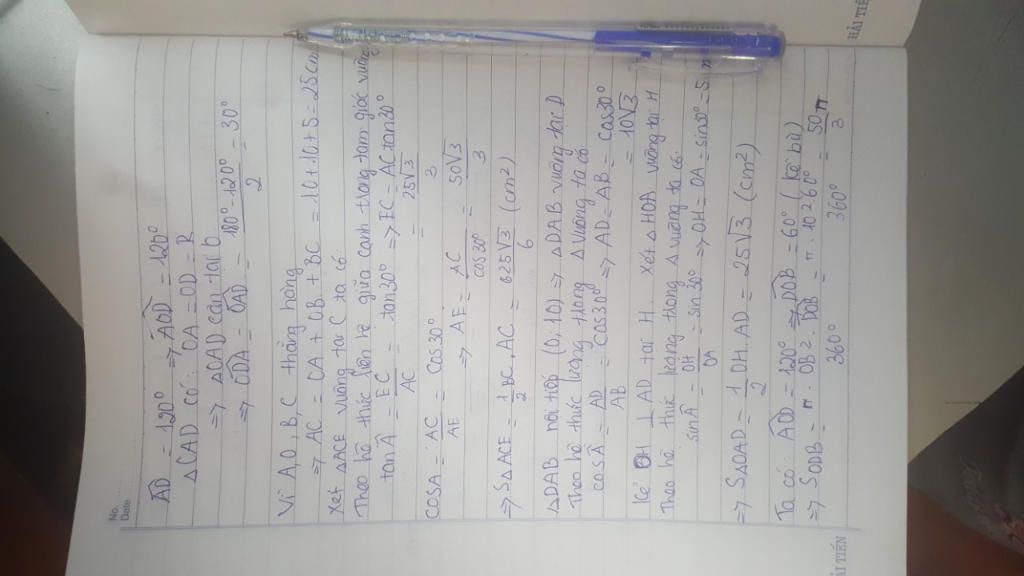 No.
Date
AD = 120° => AOD = 120°
△CAD có: OA = OD = R
=> △OAD cân tại D
=> ODA = OAD = 180° - 120° / 2 = 30°
Vì A, O, B, C thẳng hàng
=> AC = OA + OB + BC = 10 + 10 + 5 = 25cm
Xét △ACE vuông tại C ta có
Theo hệ thức liên hệ giữa cạnh trong tam giác vuông
tan A = EC / AC = tan30° => EC = AC tan30°
= 25√3 / 3
COSA = AC / AE = cos30°
=> AE = AC / cos30° = 50√3 / 3
=> S△ACE = 1/2 BC.AC = 625√3 / 6 (cm²)
△DAB nội tiếp (O; 10) => △DAB vuông tại D
Theo hệ thức lượng trong △ vuông ta có
cosA = AD / AB = cos30° => AD = AB = cos30°
= 10√3
Kẻ OH ⊥ AD tại H. Xét △HOA vuông tại H
Theo hệ thức lượng trong △ vuông ta có.
sinA = OH / OA = sin30° => OH = OA = sin30° = 5
=> S△OAD = 1/2 OH.AD = 25√3 (cm²)
Ta có: AOD = 120° => DOB = 60° (kề bù)
=> SODB = π . OB² . DOB / 360° = π . 10²60° / 360° = 50π / 3
HẢI TIẾN
ẢI TIẾN